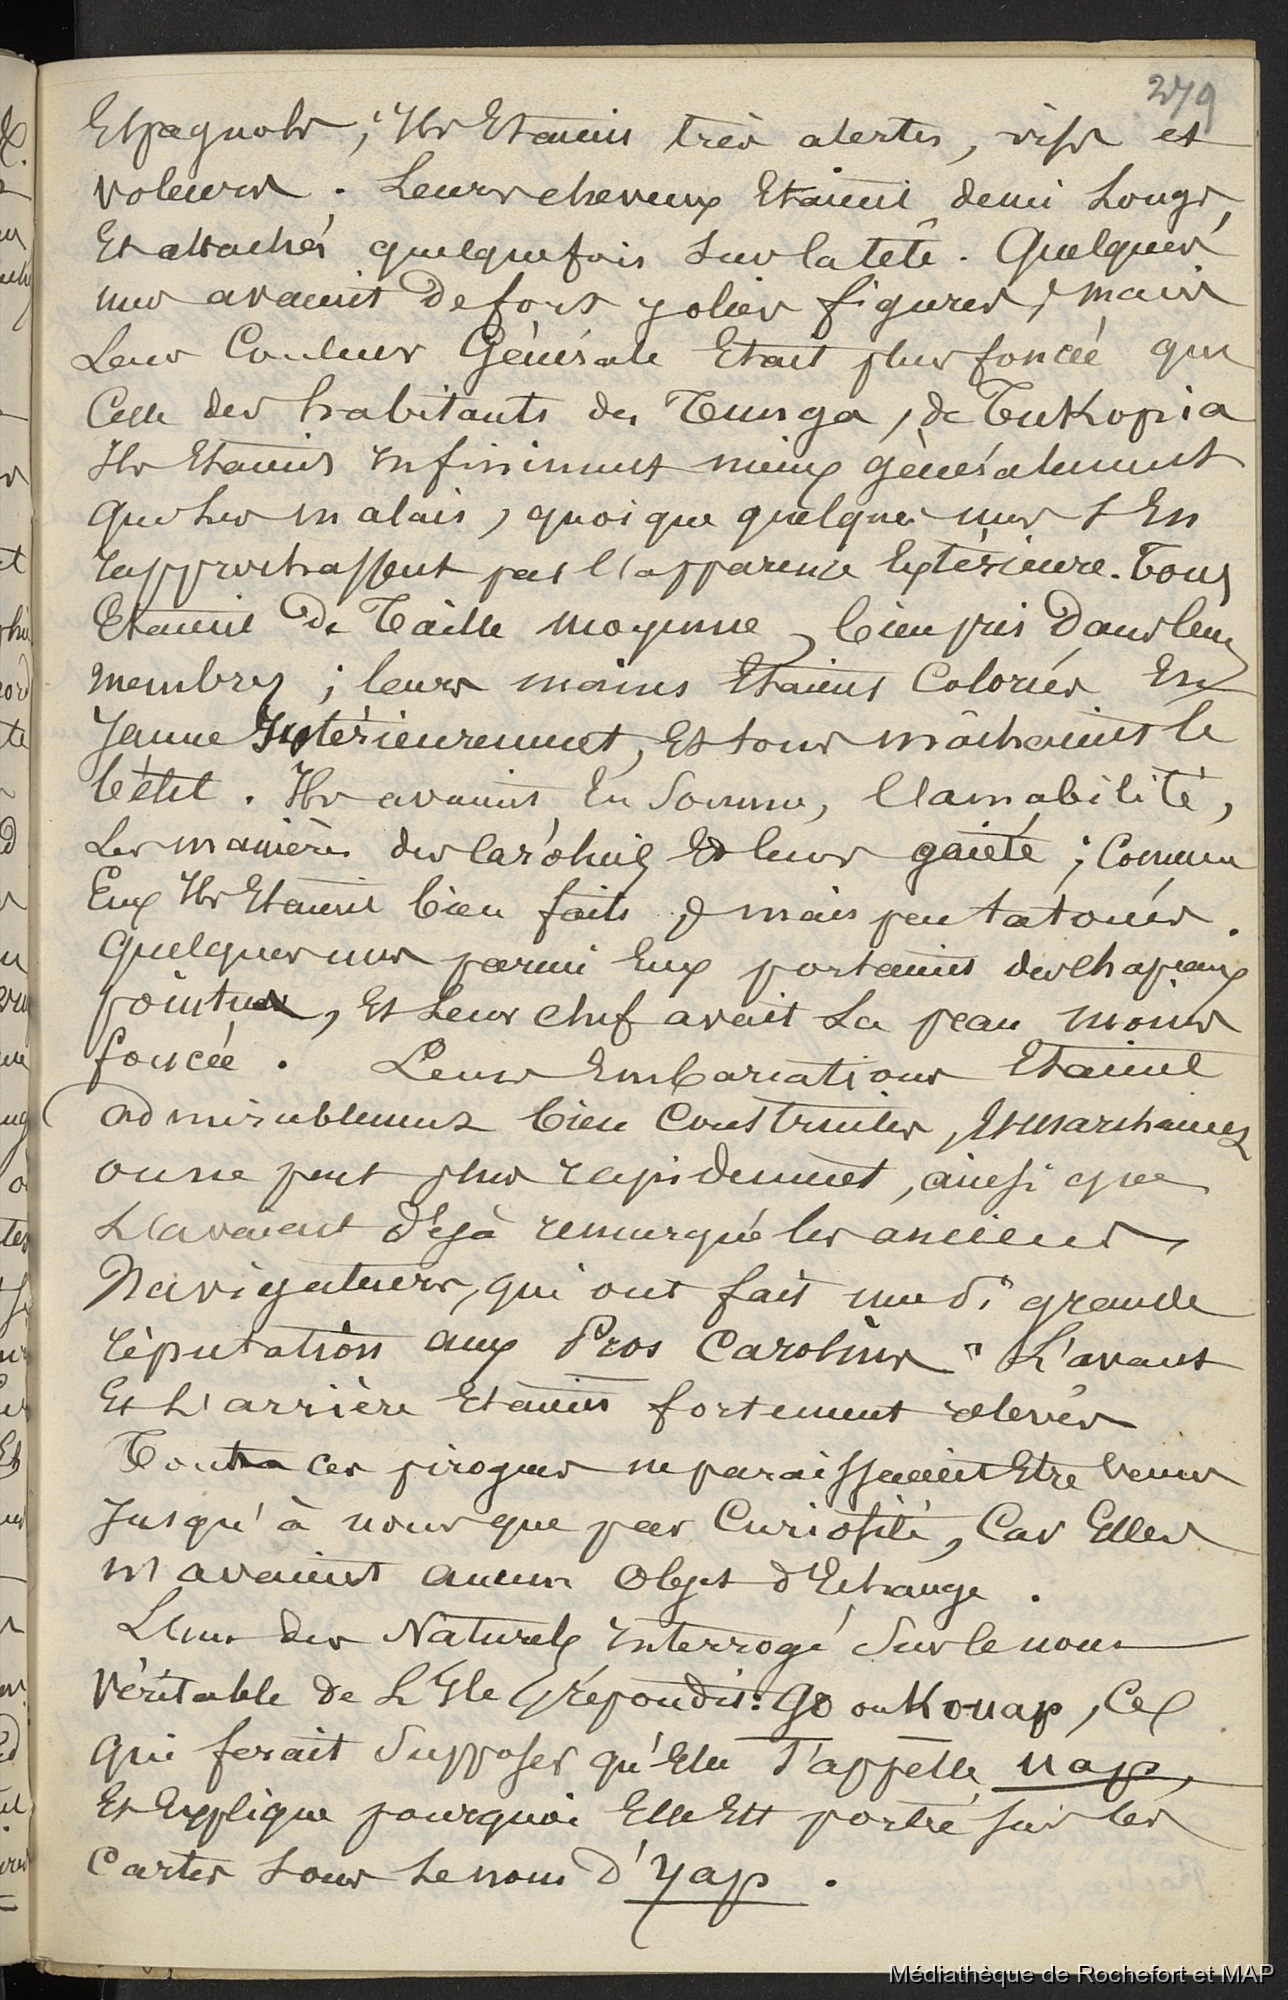 279
Espagnols ; Ils Etaient très alertes, vifs et
voleurs. Leurs cheveux Etaient demi Longs,
Et attachés quelquefois sur la tête. Quelques
uns avaient De fort jolies figures, mais
Leur Couleur Générale Etait plus foncée que
Celle des habitants de Tunga, de Tukopia
Ils Etaient infiniment mieux généralement
que Les malais, quoique quelques uns s'En
rapprochassent par l'apparence Extérieure. Tous
Etaient De Taille moyenne, bien pris Dans leurs
membres ; leurs mains Etaient Coloriés En
Jaune Intérieurement, Et tous mâchaient le
bétel. Ils avaient En Somme, L'amabilité,
Les manières des Carolins Et leur gaieté ; Comme
Eux Ils Etaient bien faits, mais peu tatoués.
Quelques uns parmi Eux portaient des Chapeaux
pointus, Et Leur chef avait La peau moins
foncée. Leurs Embarcations Etaient
admirablement bien Construites, Et marchaient
on ne peut plus rapidement, ainsi que
L'avaient Déjà remarqué les anciens
Navigateurs, qui ont fait une Si grande
réputation aux Pros Carolins " L'avant
Et L'arrière Etaient fortement relevés
Toutes ces pirogues ne paraissaient Etre venues
Jusqu'à nous que par Curiosité, Car Elles
n'avaient aucun Objet d'Echange.
L'un des Naturels interrogé Sur le nom
Véritable de L'Ile répondit : Go ou Kouap, Ce
qui ferait Supposer qu'Elle S'appelle Uap,
Et Explique pourquoi Elle Est portée sur les
Cartes sous Le nom D'Yap.
Médiathèque de Rochefort et MAP